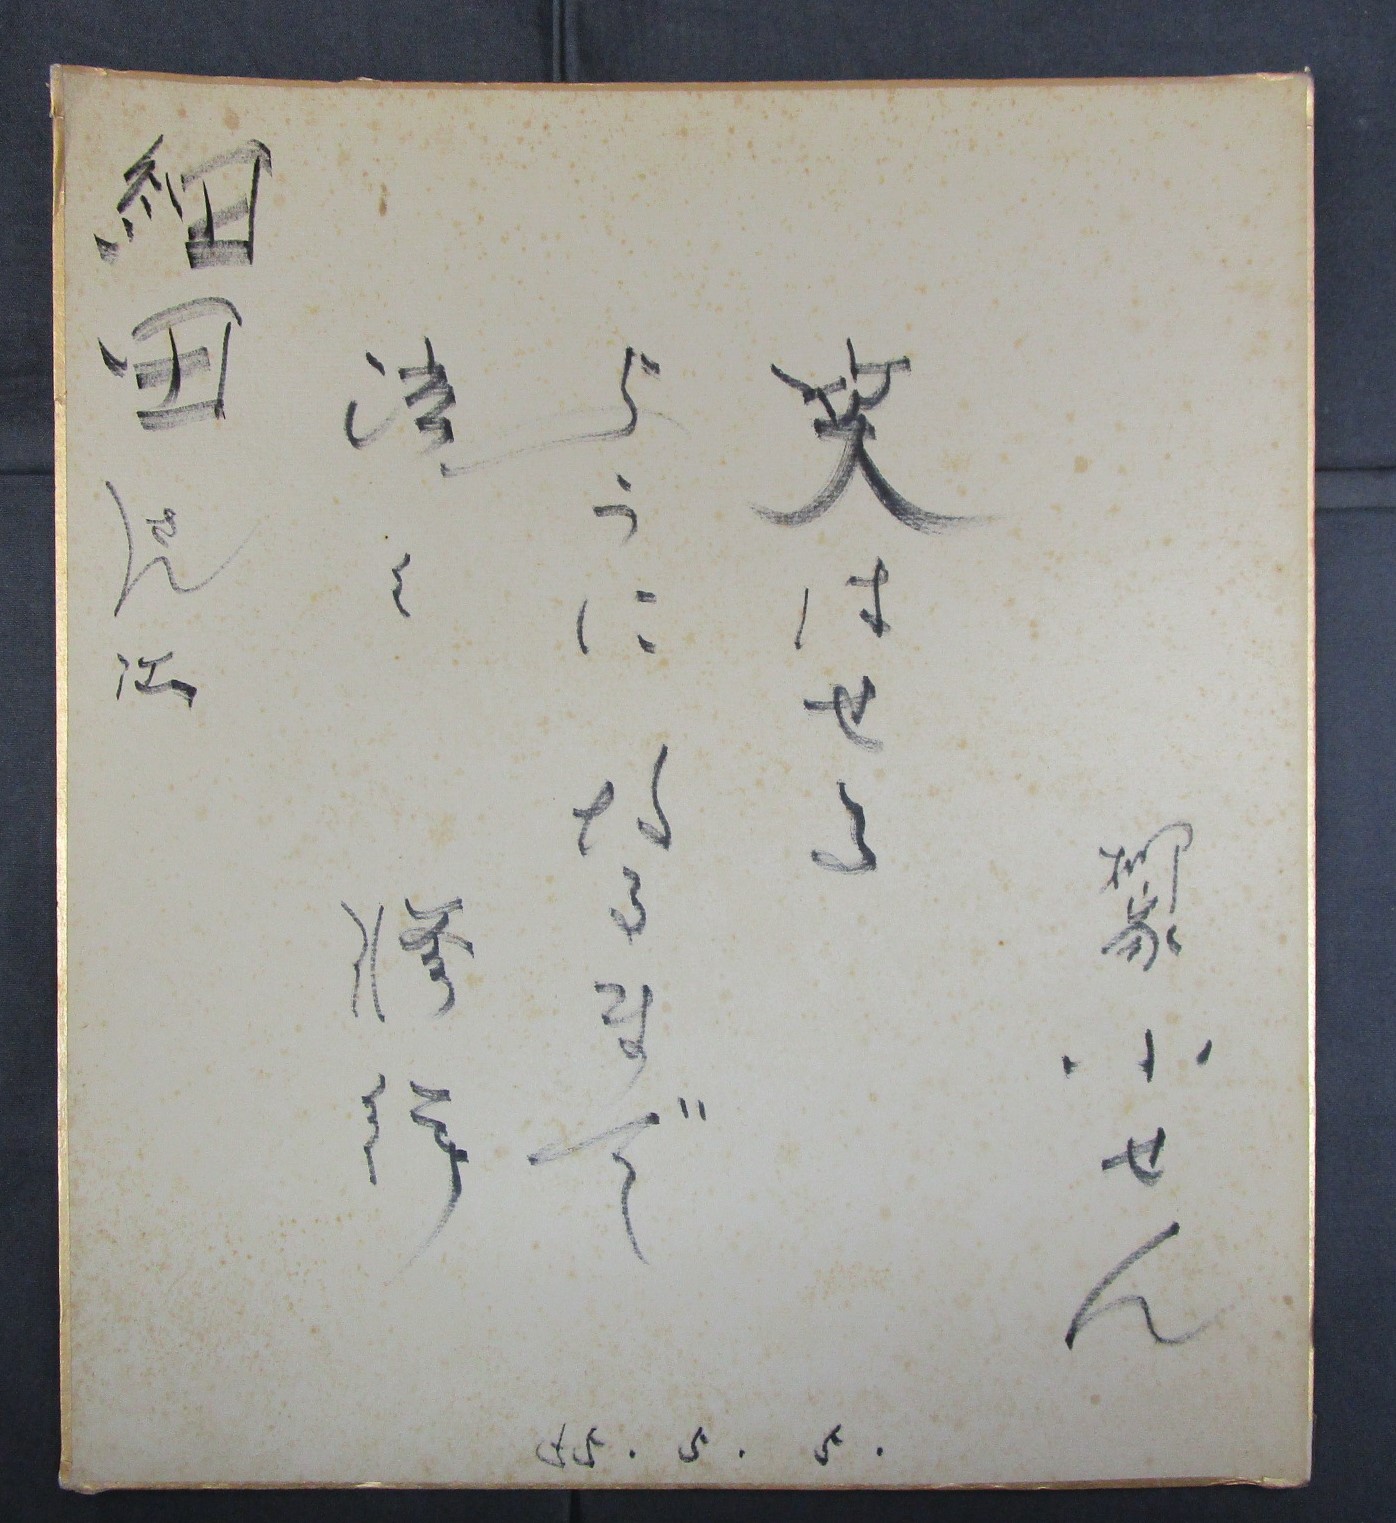 柳家小せん
笑はせる
ようになるまで
泣く修行
細田さん江
55.5.5.